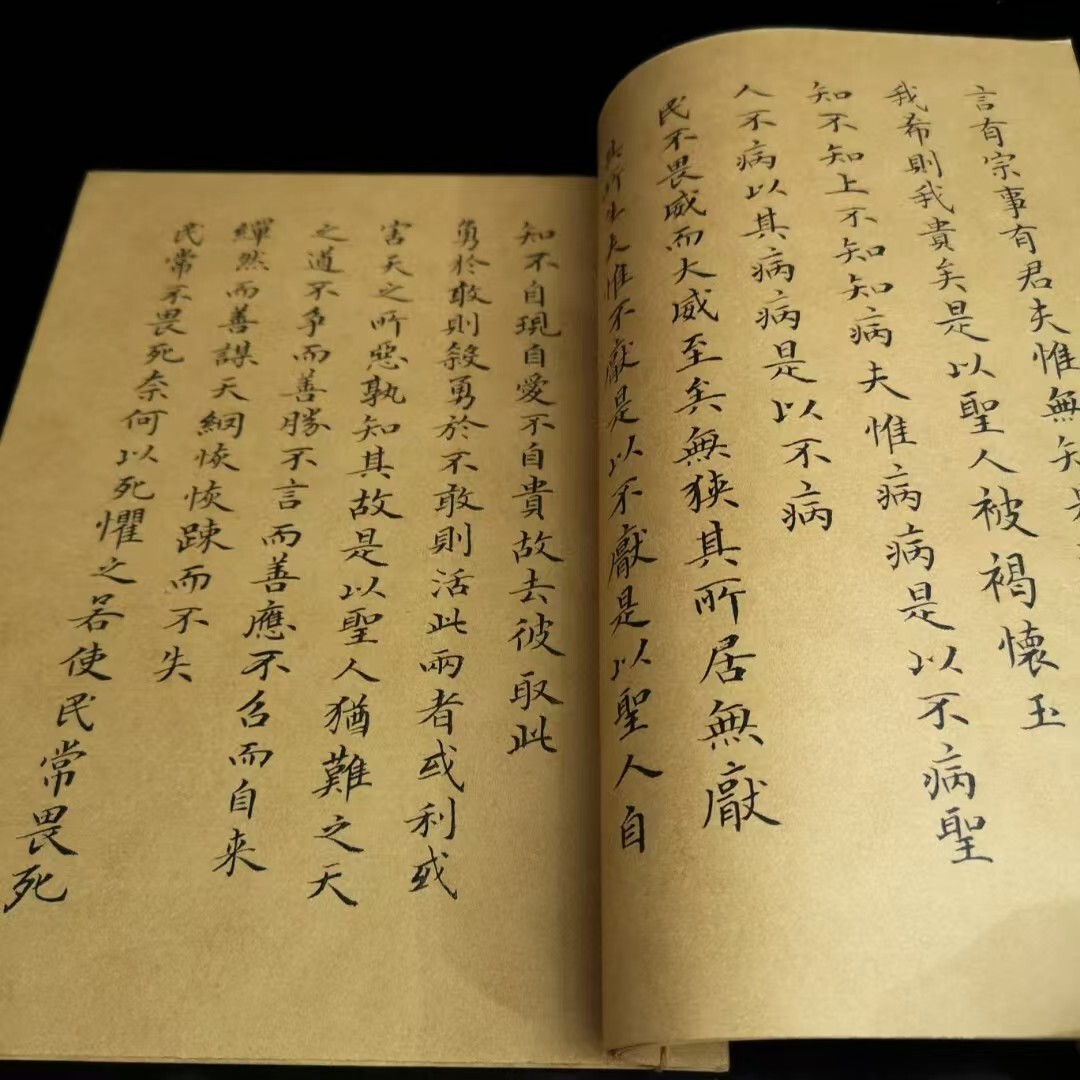 言有宗事有君夫惟無知是
我希則我貴矣是以聖人被褐懷玉
知不知上不知知病夫惟病病是以不病聖
人不病以其病病是以不病
民不畏威而大威至矣無狹其所居無厭
其所生夫惟不厭是以不厭是以聖人自
知不自現自愛不自貴故去彼取此
勇於敢則殺勇於不敢則活此兩者或利或
害天之所惡孰知其故是以聖人猶難之天
之道不争而善勝不言而善應不召而自来
繟然而善謀天網恢恢踈而不失
民常不畏死奈何以死懼之若使民常畏死